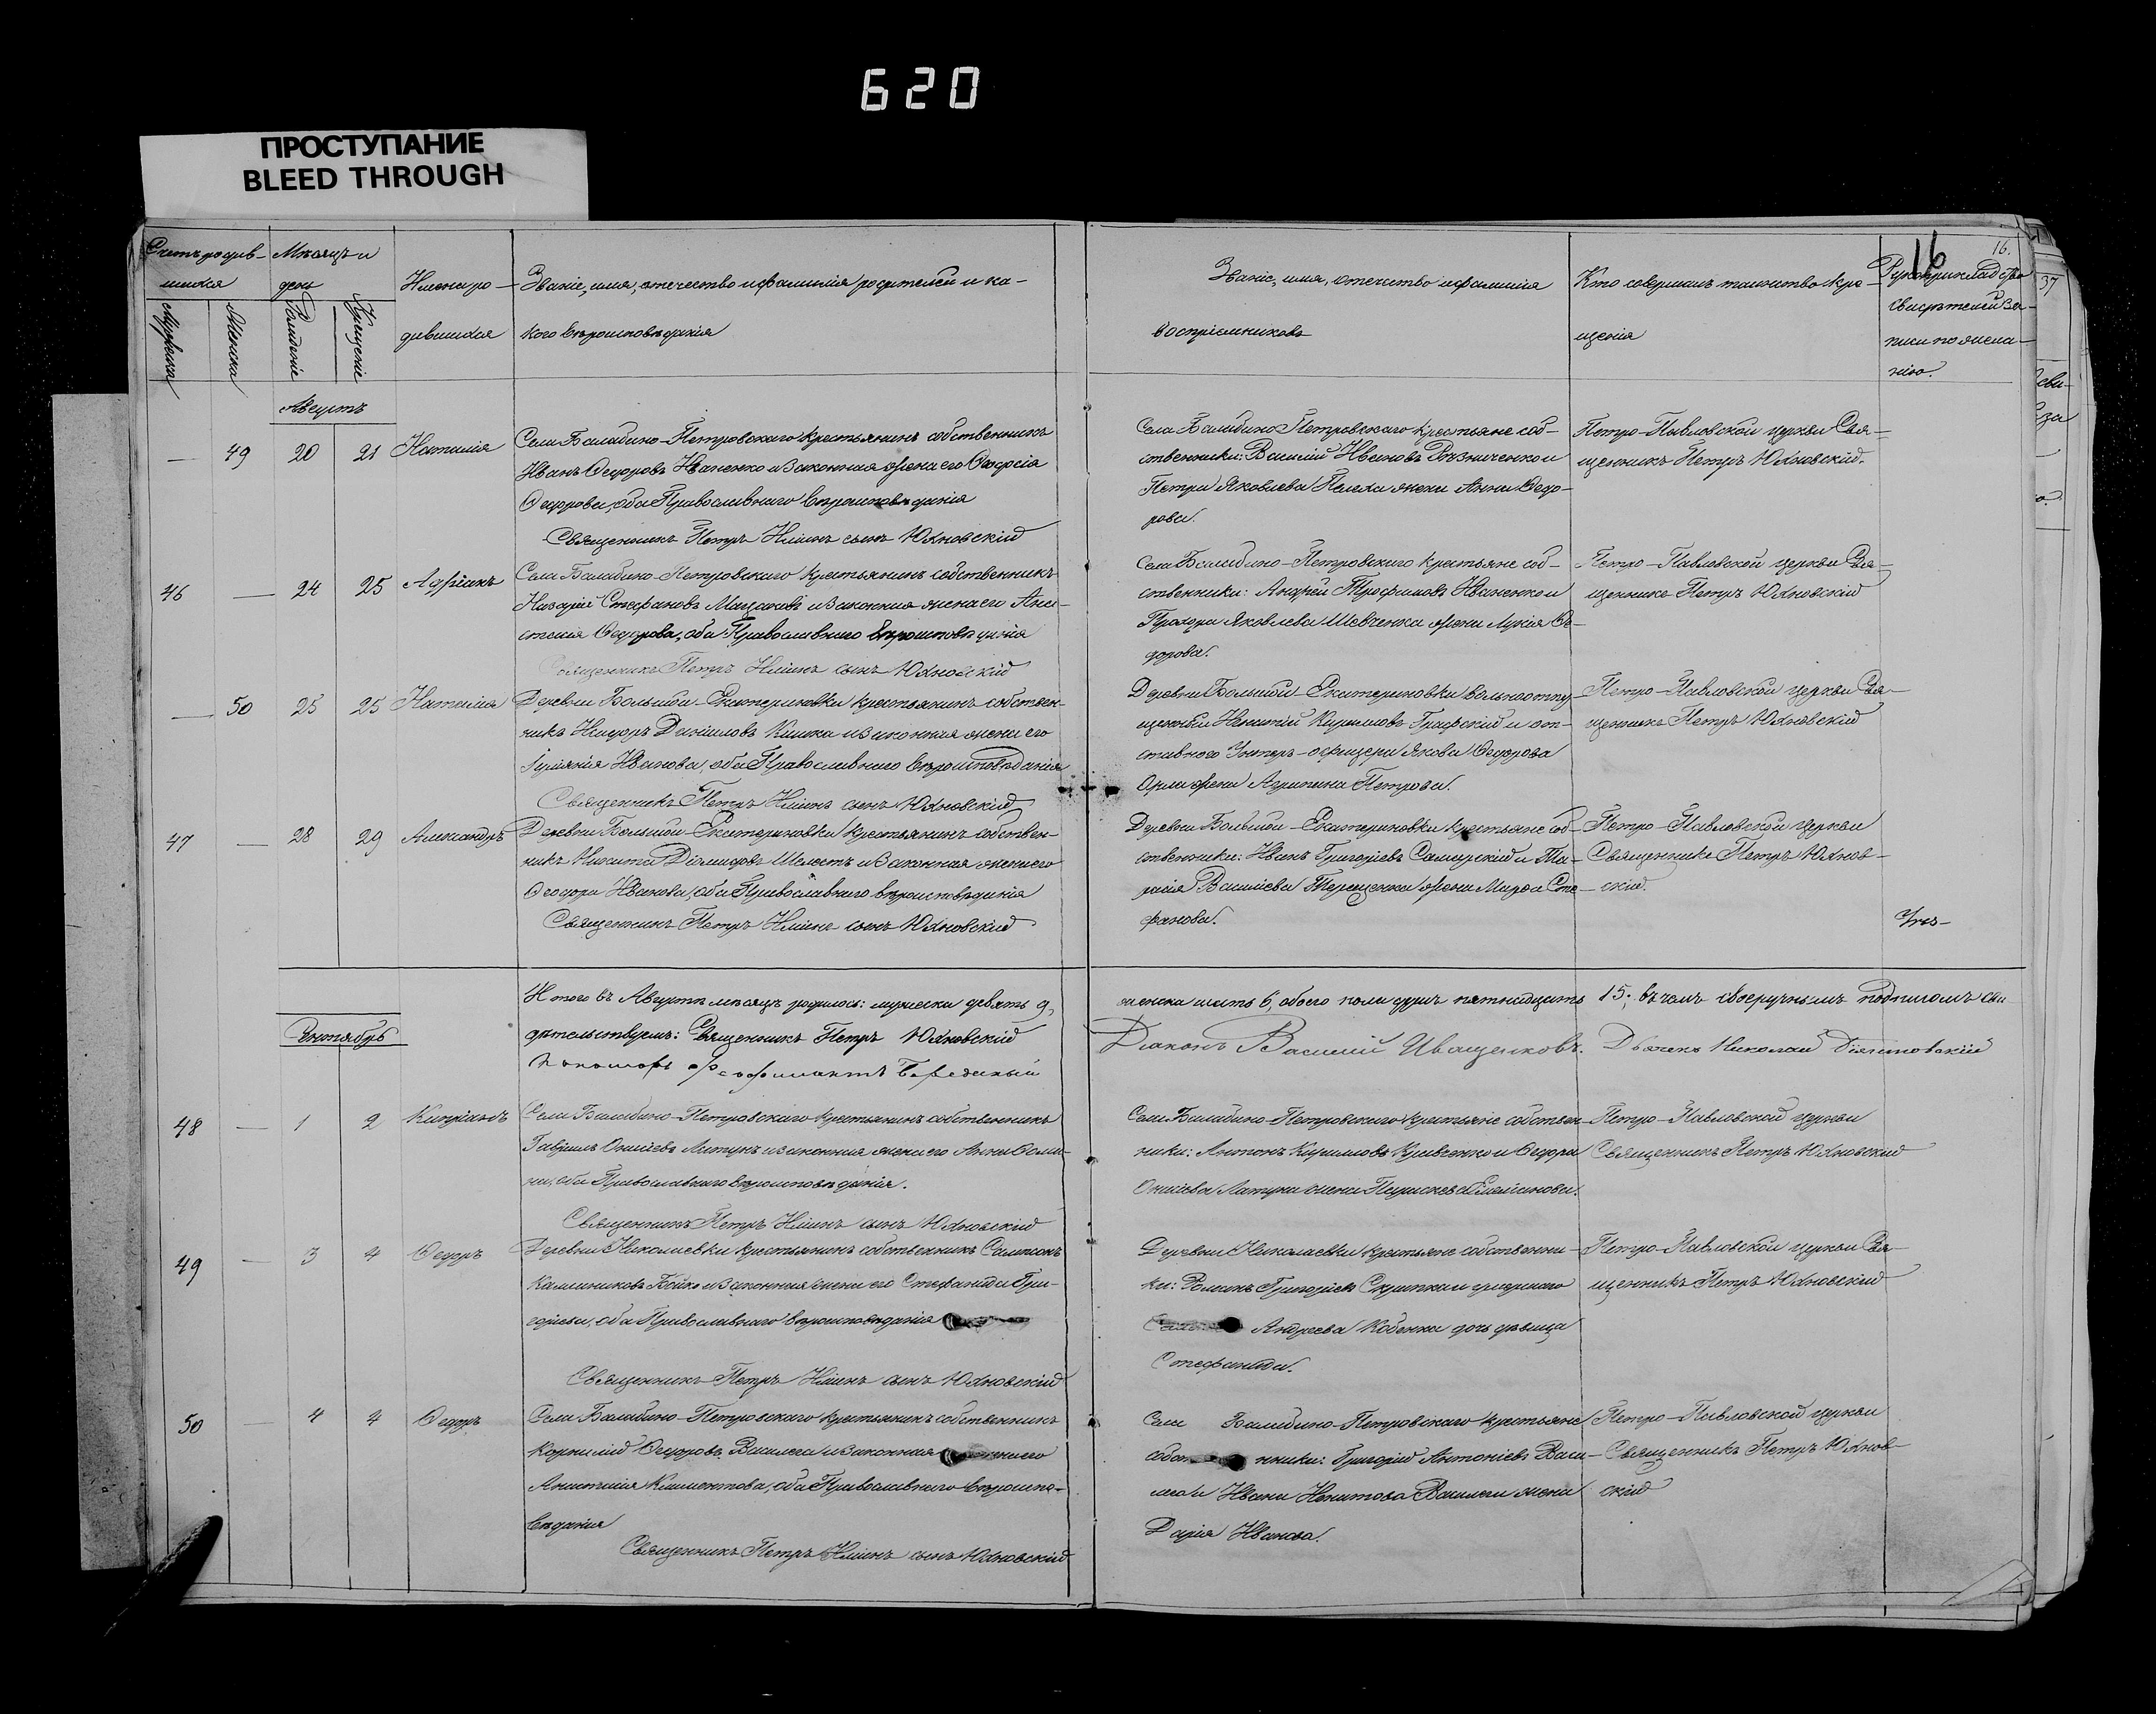 620
ПРОСТУПАНИЕ
BLEED THROUGH
16
16.
37
Счетъ родив-
шихся
Мѣсяцъ и
день
Мужеска
Женска
Рожденіе
Крещеніе
Имена ро-
дившихся
Званіе, имя, отечество и фамилія родителей и ка-
кого вѣроисповѣданія
Званіе, имя, отечество и фамилія
воспріемниковъ
Кто совершалъ таинство кре-
щенія
Рукоприкладство
свидѣтелей за-
писи по жела-
нію.
Августъ
— 49 20 21 Наталія
Села Балабино-Петровскаго крестьянинъ собственникъ
Иванъ Ѳедоровъ Иваненко и законная жена его Ѳеодосія
Ѳедорова, оба Православнаго вѣроисповѣданія
Священникъ Петръ Иліинъ сынъ Юхновскій
Села Балабино-Петровскаго крестьяне соб-
ственники: Василій Ивановъ Рѣзниченко и
Петра Яковлева Пелеха жена Анна Ѳедо-
рова.
Петро-Павловской церкви Свя-
щенникъ Петръ Юхновскій.
46 — 24 25 Адріанъ
Села Балабино-Петровскаго крестьянинъ собственникъ
Назарій Стефановъ и законная жена его Ана-
стасія Ѳедорова, оба Православнаго вѣроисповѣданія
Священникъ Петръ Иліинъ сынъ Юхновскій
Села Балабино-Петровскаго крестьяне соб-
ственники: Андрей Трофимовъ Иваненко и
Прохора Яковлева Шевченка жена Лукія Ѳе-
дорова.
Петро-Павловской церкви Свя-
щенникъ Петръ Юхновскій
— 50 25 25 Наталія
Деревни Большой-Екатериновки крестьянинъ собствен-
никъ Исидоръ Даніиловъ Кишка и законная жена его
Іуліянія Иванова, оба Православнаго вѣроисповѣданія
Священникъ Петръ Иліинъ сынъ Юхновскій
Деревни Большой-Екатериновки вольноотпу-
щенный Кириловъ Графскій и от-
ставнаго Унтеръ-офицера Якова Ѳедорова
Орла жена Агрипина Петрова.
Петро-Павловской церкви Свя-
щенникъ Петръ Юхновскій
47 — 28 29 Александръ
Деревни Большой-Екатериновки крестьянинъ собствен-
никъ Никита Діомидовъ Шелестъ и законная жена его
Ѳеодора Иванова, оба Православнаго вѣроисповѣданія
Священникъ Петръ Иліинъ сынъ Юхновскій
Деревни Большой-Екатериновки крестьяне соб-
ственники: Иванъ Григоріевъ Самарскій и Та-
расія Василіева Терещенка жена Марѳа Сте-
фанова.
Петро-Павловской церкви
Священникъ Петръ Юхнов-
скій.
Итого въ Августѣ мѣсяцѣ родилось: мужеска девять 9,
женска шесть 6, обоего пола душъ пятнадцать 15; въ чемъ своеручнымъ подписомъ сви-
дѣтельствуемъ: Священникъ Петръ Юхновскій
Діаконъ Василій Иващенковъ. Дьячекъ Николай
Пономарь
Сентябрь
48 — 1 2 Кипріанъ
Села Балабино-Петровскаго крестьянинъ собственникъ
Гавріилъ Онисіевъ Латунъ и законная жена его Анна Ѳоми-
на, оба Православнаго вѣроисповѣданія.
Священникъ Петръ Иліинъ сынъ Юхновскій
Села Балабино-Петровскаго крестьяне собствен-
ники: Антонъ Кириловъ Кравченко и Ѳедора
Онисіева Латуна жена
Петро-Павловской церкви
Священникъ Петръ Юхновскій
49 — 3 4 Ѳедоръ
Деревни Николаевки крестьянинъ собственникъ Сампсонъ
Калиниковъ Бойко и законная жена его Стефанида Гри-
горіева, оба Православнаго вѣроисповѣданія
Священникъ Петръ Иліинъ сынъ Юхновскій
Деревни Николаевки крестьяне собственни-
ки: Романъ Григоріевъ Скрипка и умершаго
Андреева Кобенка дочь дѣвица
Стефанида.
Петро-Павловской церкви Свя-
щенникъ Петръ Юхновскій
50 — 4 4 Ѳедоръ
Села Балабино-Петровскаго крестьянинъ собственникъ
Корнилій Ѳедоровъ Василега и законная жена его
Анастасія Климентова, оба Православнаго вѣроиспо-
вѣданія
Священникъ Петръ Иліинъ сынъ Юхновскій
Села Балабино-Петровскаго крестьяне
собст нники: Григорій Антоніевъ Васи-
лега и Ивана Василеги жена
Дарія Иванова.
Петро-Павловской церкви
Священникъ Петръ Юхнов-
скій